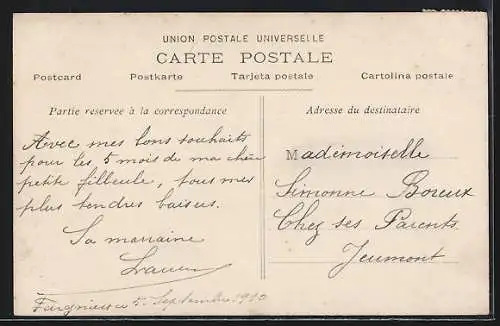 UNION POSTALE UNIVERSELLE
CARTE POSTALE
Postcard Postkarte Tarjeta postale Cartolina postale
Partie reservee à la correspondance
Avec mes bons souhaits
pour les 5 mois de ma chère
petite filleule, tous mes
plus tendres baisers.
Sa marraine
5 Septembre 1910
Adresse du destinataire
Mademoiselle
Simonne Boreux
Chez ses Parents
Jeumont